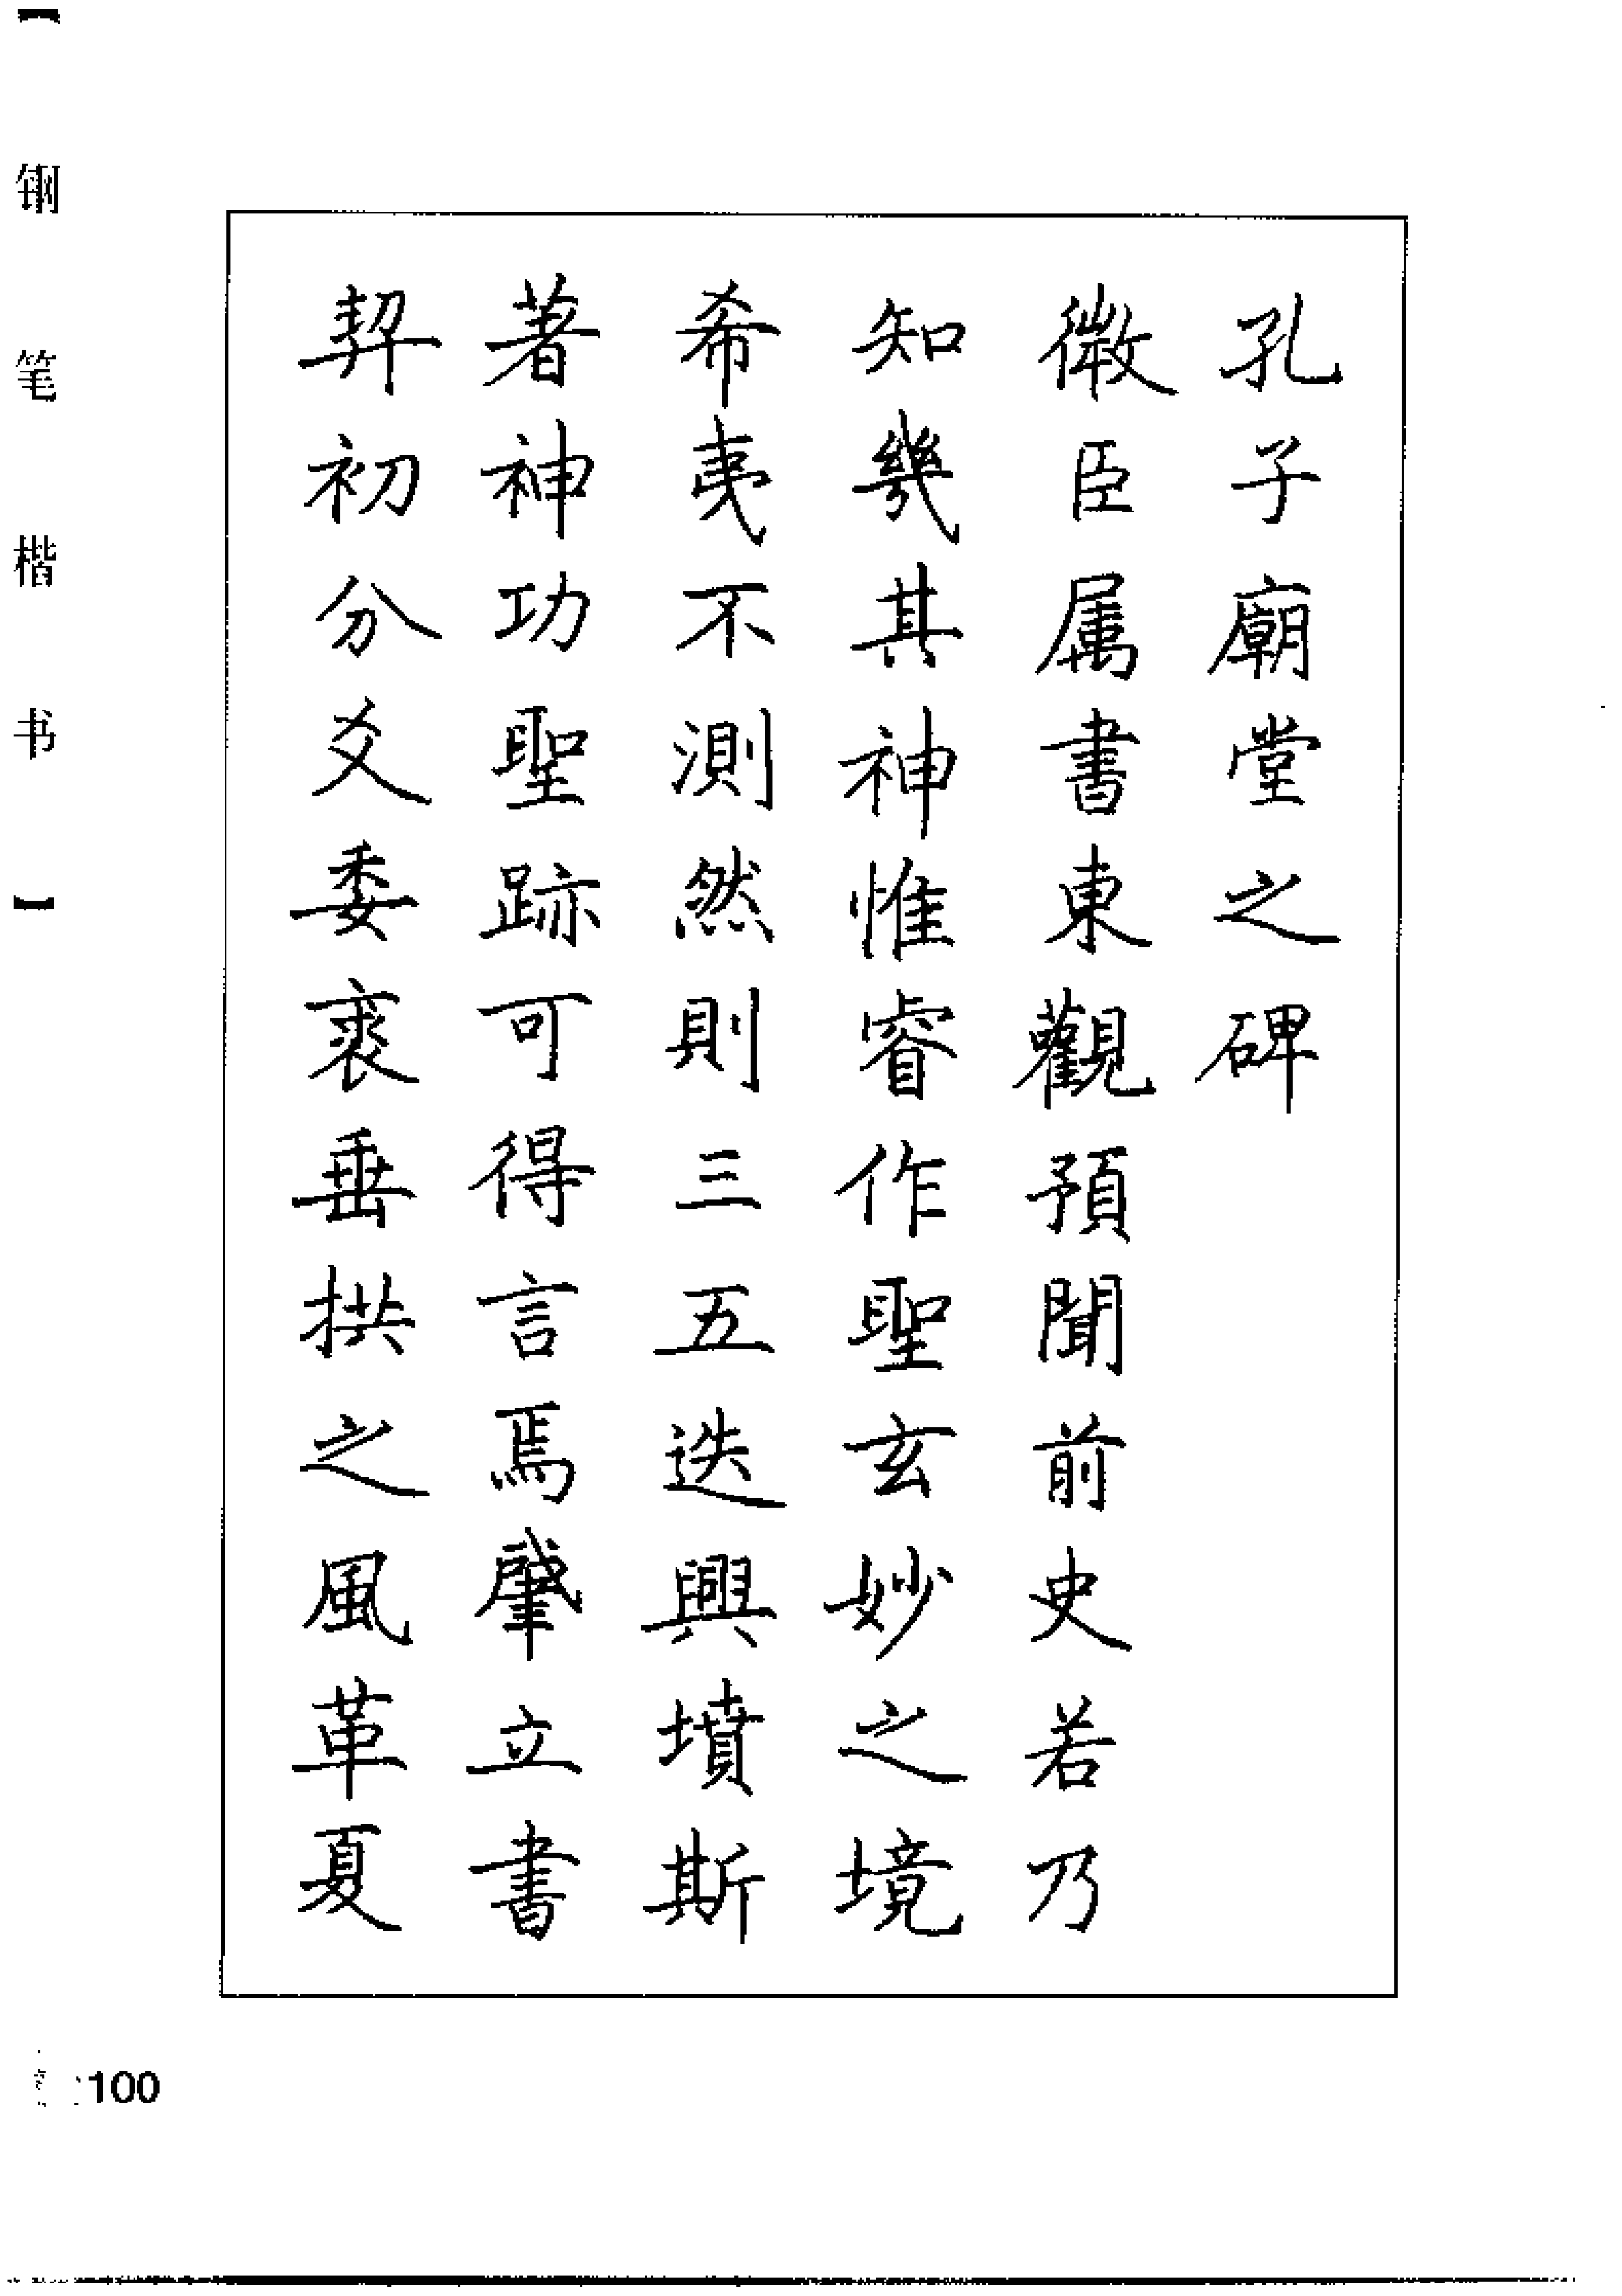 孔子廟堂之碑
微臣属書東觀預聞前史若乃
知幾其神惟睿作聖玄妙之境
希夷不測然則三五迭興墳斯
著神功聖跡可得言焉肇立書
契初分爻委裘垂拱之風革夏
【钢笔楷书】
100